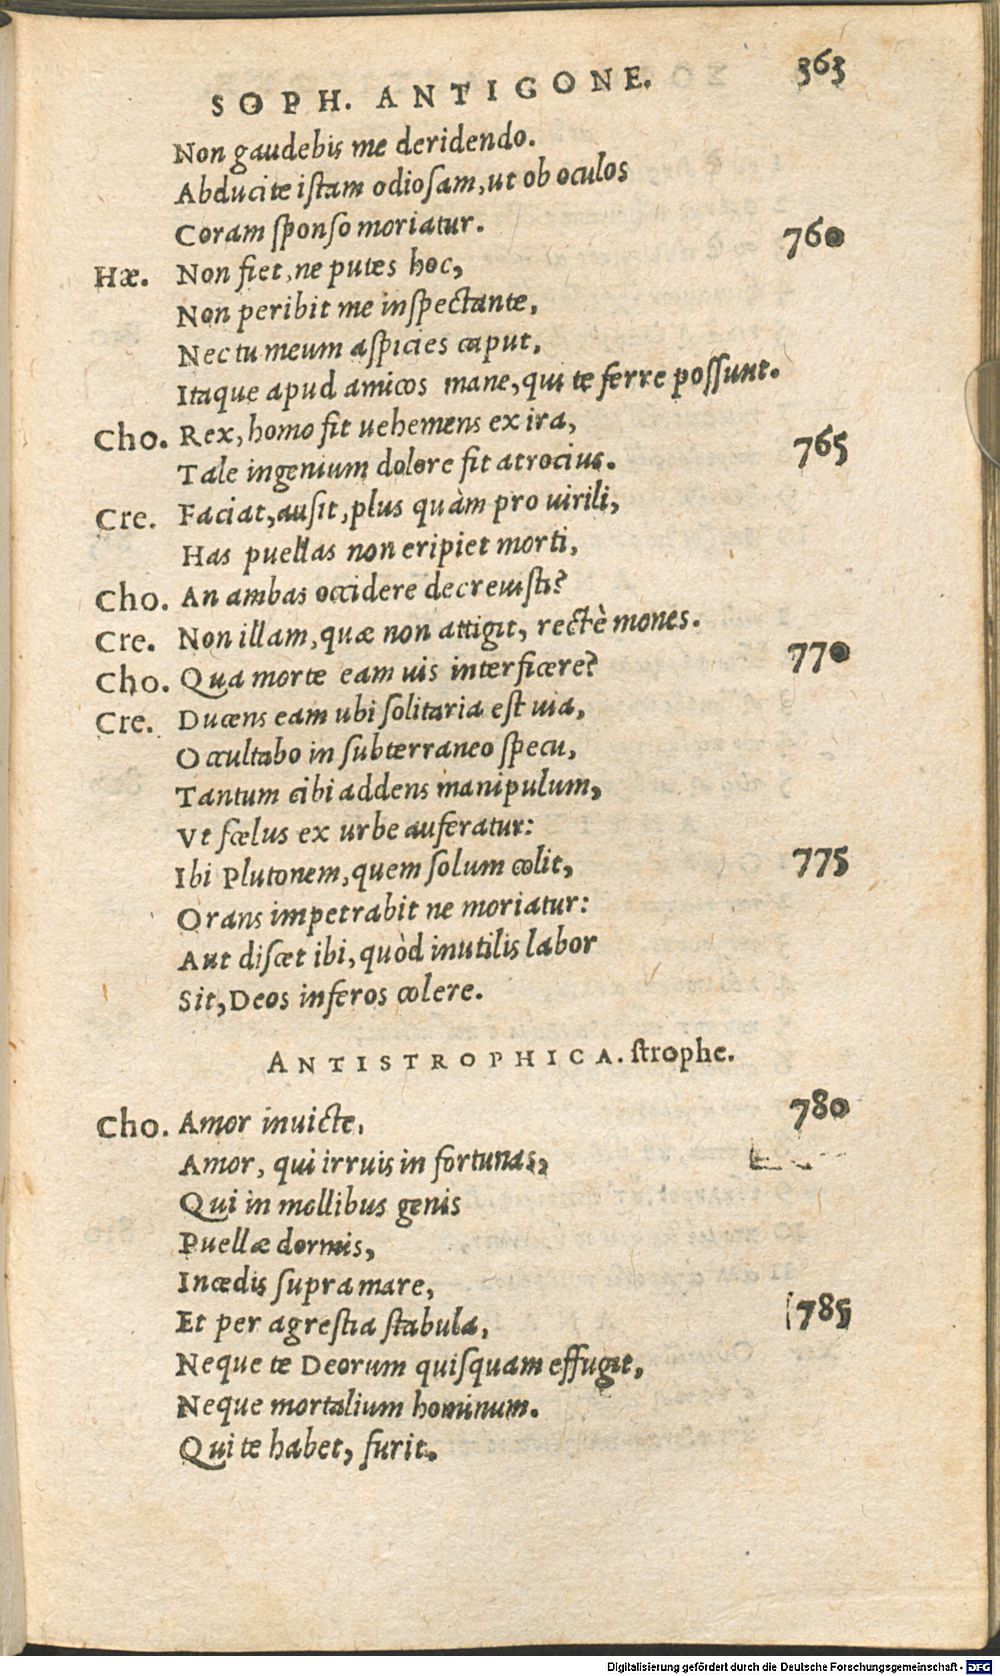 SOPH. ANTIGONE. 363
Non gaudebis me deridendo.
Abducite istam odiosam, ut ob oculos
Coram sponso moriatur. 760
Hæ. Non fiet, ne putes hoc,
Non peribit me inspectante,
Nec tu meum aspicies caput,
Itaque apud amicos mane, qui te ferre possunt.
Cho. Rex, homo fit uehemens ex ira,
Tale ingenium dolore fit atrocius. 765
Cre. Faciat, ausit, plus quàm pro uirili,
Has puellas non eripiet morti,
Cho. An ambas occidere decreuisti?
Cre. Non illam, quæ non attigit, rectè mones.
Cho. Qua morte eam uis interficere? 770
Cre. Ducens eam ubi solitaria est uia,
Occultabo in subterraneo specu,
Tantum cibi addens manipulum,
Vt scelus ex urbe auferatur:
Ibi Plutonem, quem solum colit, 775
Orans impetrabit ne moriatur:
Aut discet ibi, quòd inutilis labor
Sit, Deos inferos colere.
ANTISTROPHICA. strophe.
Cho. Amor inuicte, 780
Amor, qui irruis in fortunas,
Qui in mollibus genis
Puellæ dormis,
Incedis supra mare,
Et per agrestia stabula, 785
Neque te Deorum quisquam effugit,
Neque mortalium hominum.
Qui te habet, furit.
Digitalisierung gefördert durch die Deutsche Forschungsgemeinschaft - DFG